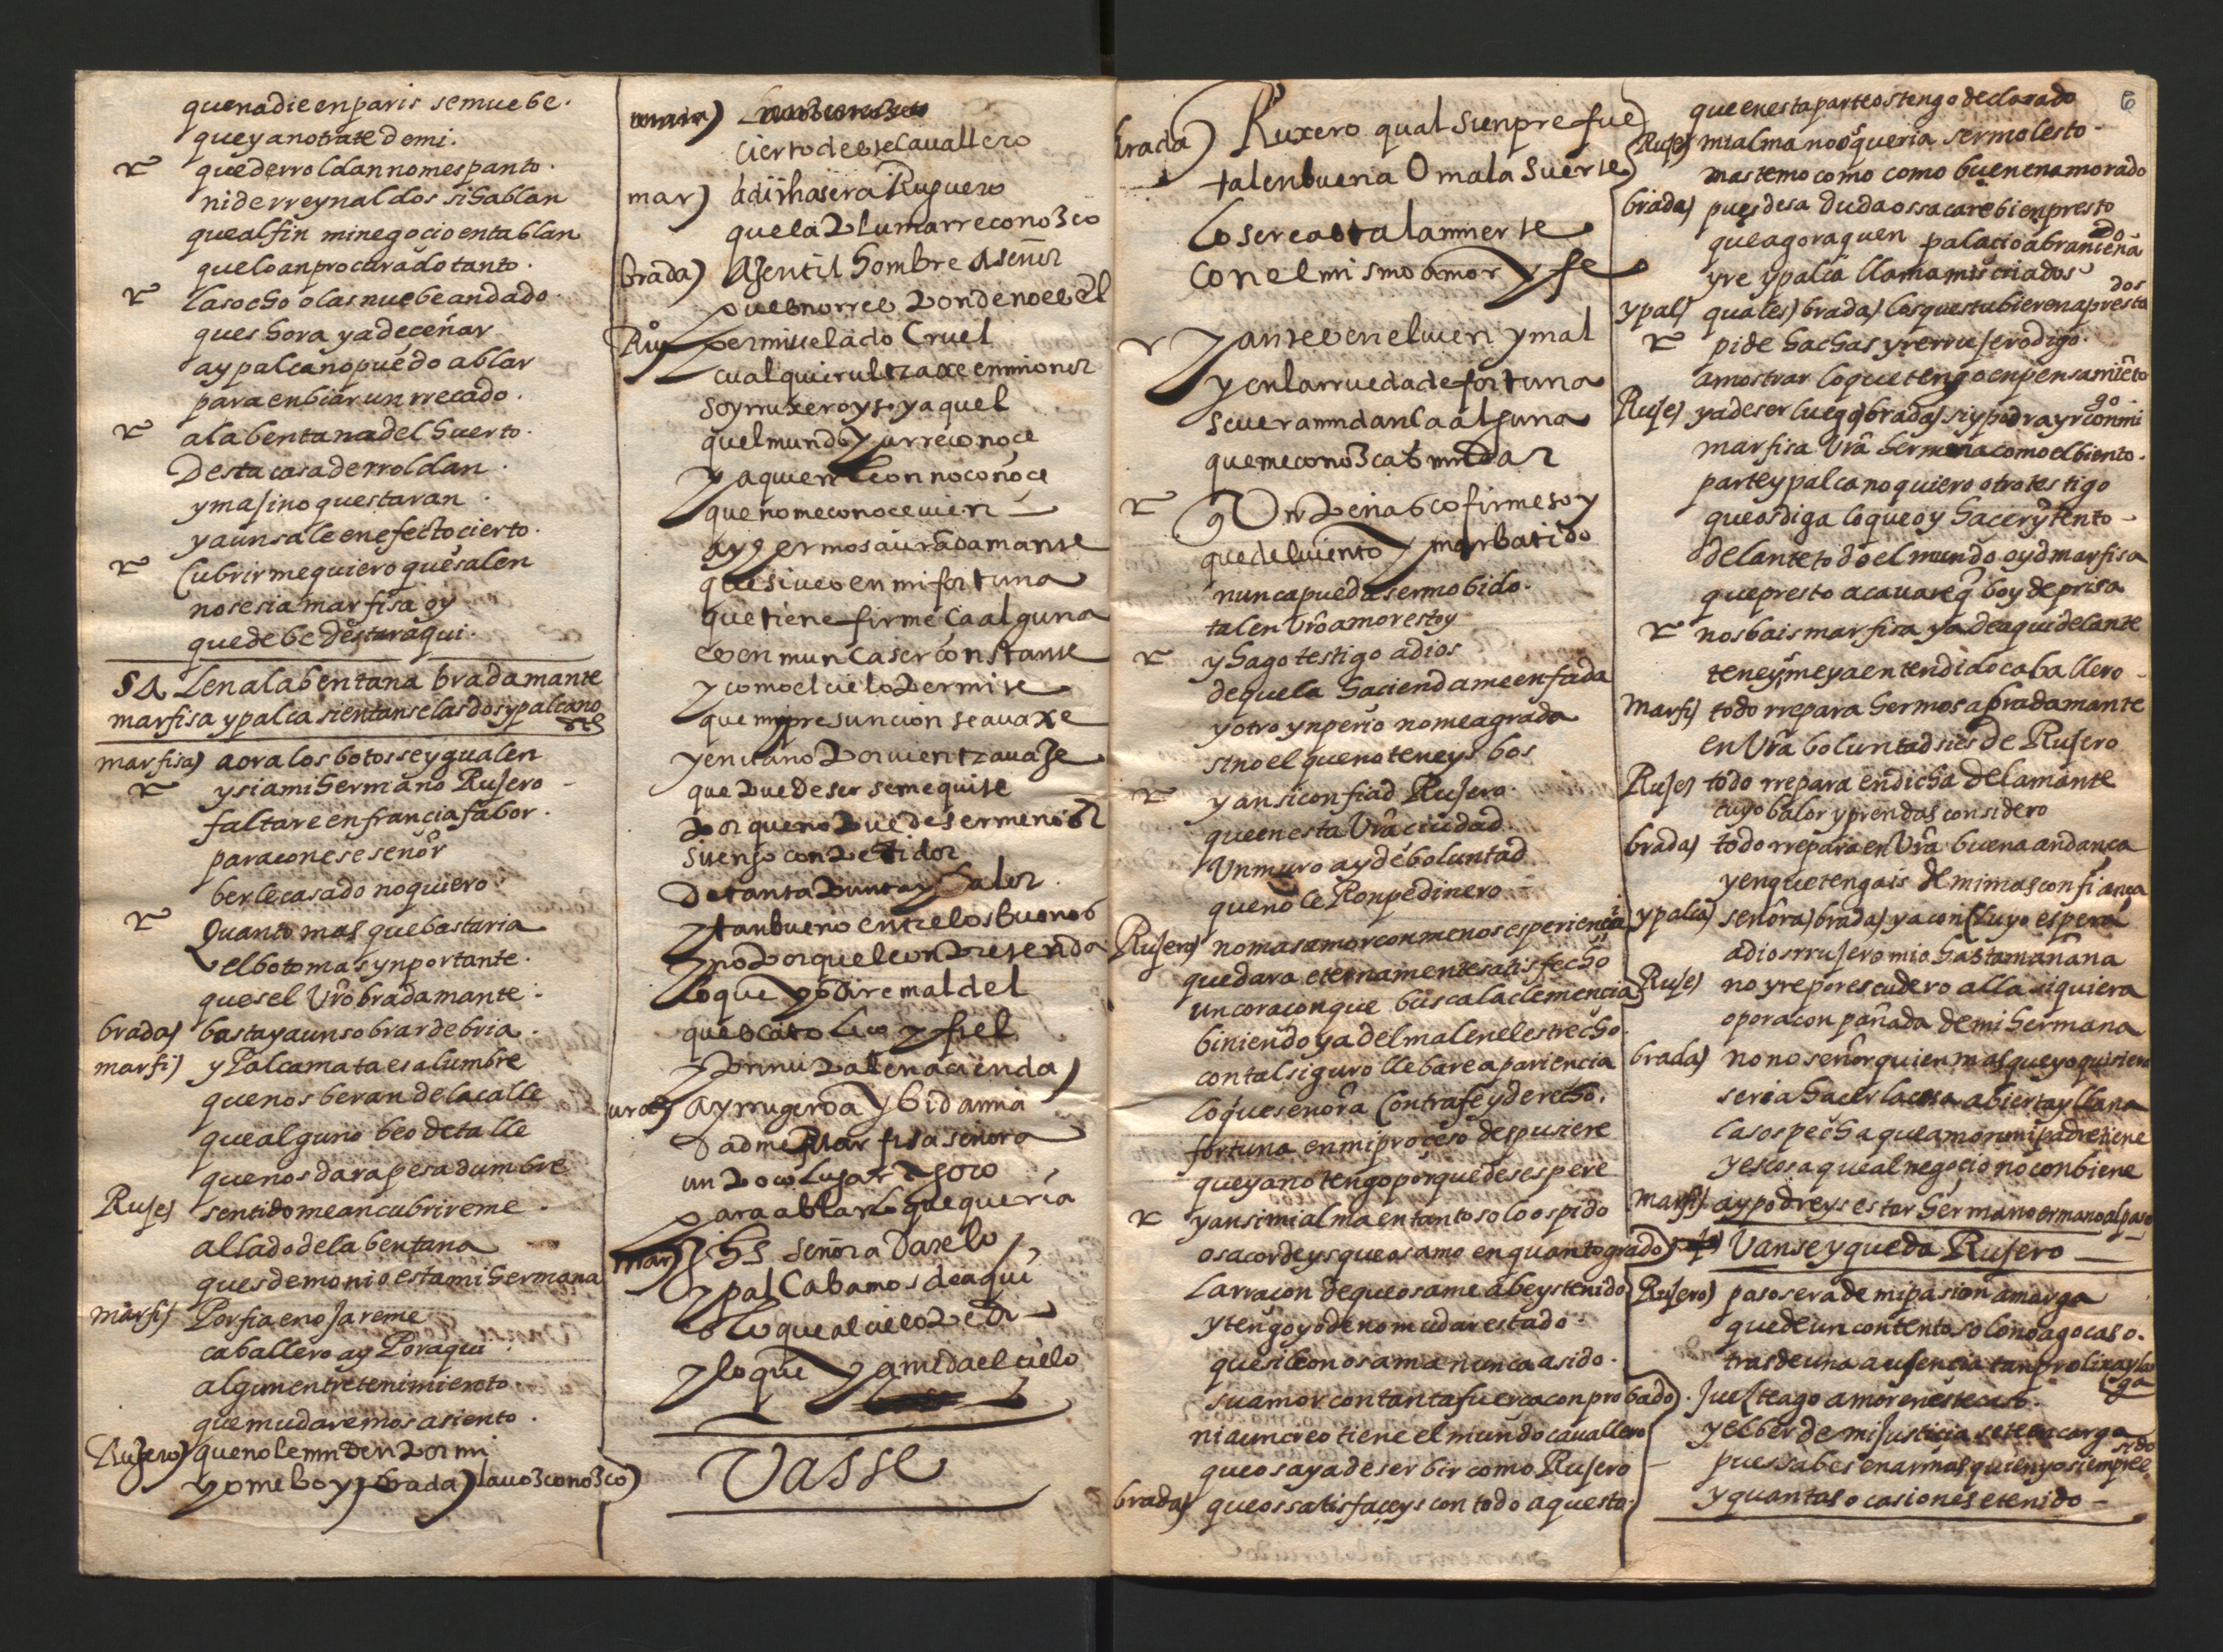 quenadie en paris semuebe.
queyanotrate demi.
quederroldan nomespanto.
niderreynaldos sihablan
quealfin minegocio entablan
queloanprocurado tanto.
lasocho olasnuebe andado
ques hora yadeçenar
aypalcanopuedo ablar
para enbiar un rrecado.
alabentanadel huerto.
Desta casa derroldan.
ymajino questaran.
yaunsale enefecto cierto.
Cubrirmequiero quesalen
nosesiamarfisa oy
quedebe destaraqui.
SALen alabentana bradamante
marfisa ypalca sientanselasdosypalcano
marfisa) aora los botosseygualen
ysiamihermano Rujero
faltare enfrancia fabor.
paraconese señor
berlecasado noquiero.
Quanto mas quebastaria
elboto mas ynportante.
quesel Vro bradamante.
brada) bastayaunsobrardebria.
marfi) y Palcamata esa lumbre
quenos beran delacalle
quealguno beo detalle
quenosdara pesadumbre
Ruje) sentidomean cubrireme.
alladodelabentana
quesdemonio estamihermana
marfi) Porfia enojareme
caballero ay Poraqui
algun entretenimiento
quemudaremos asiento.
Rujero) quenolemnden por mi
yomeboy) brada) lavozconozco)
cierto de ese Cavallero
mar) adimhasera Ruguero
quela plumarreconozco
brada) A gentil hombre A señor
puesnorres ponde noes el
Ru) permivelado Cruel
cualquierultraxe enmionor
soyrruxero y soy aquel
quelmundo yarreconoce
yaquien leon noconoce
quenomeconocevien
ay hermosa uradamante
quesiveo en mi fortuna
quetiene firmeça alguna
es en nunca ser constante
y como el cielo permite
que mypresuncion se avaxe
y en vano por vientravaje
que puede ser semequite
por queno puede ser menor
si vengo con petidor
De tanta punta y Valor.
ytanbueno entrelosbuenos
yno por que leon pretenda
lo que yo dire mal del
quescatolico y fiel
ura) ay rrugeroa y bida mia
dadme Marfisa señora
un poco lugar agora
para ablarlo que queria
mar) hs señora daxelo
ypalCabamos deaqui
lo que al cielo pedi
ylo que yamedaelcielo
Vasse
brada) Ruxero qual sienpre fue
tal en buena O mala Suerte
lo sere asta la muerte
con el mismo amor y fe
yantes en elvien y mal
yenlarruedadefortuna
severamndanla alguna
quemeconozcas mudar
Un peñasco firmesoy
quedelviento y mar batido
nuncapueda sermobido.
talen Vroamorestoy
yhago testigo adios
dequela haciendameenfada
yotro ynperio nomeagrada
sinoel quenoteneys bos
yansiconfiad Rujero.
queenesta Vraciudad.
Unmuro aydeboluntad
queno le Ronpedinero
Rujero) nomasamorconmenosesperiençia
quedara eternamentesatisfecho
uncoraçonque buscalaclemençia
biniendoyadelmalenelestrecho.
contalsiguro llebareapariencia
loqueseñora Contrafeyderecho.
fortuna enmiproceso despusiere
queyanotengoporquedesespere
yansimialmaentantosoloospido
osacordeysqueosamo enquantogrado)
larraçon dequeosame abeystenido
ytengoyodenomudarestado.
quesileonosama nunca asido.
suamorcontantafuerçaconprobado)
niauncreotiene elmundocavallero
queosayadeserbir como Rujero
brada) queossatisfaceys contodo aquesto
6
que enestaparteostengodeclarado
Ruje) mialmanoosqueria sermolesto
mastemo como como buenenamorado
brada) puesdesa dudaossacarebienpresto
queagoraquen palacioabrancenado
yre ypalca llamamiscriados
ypal) quales) brada) losquestubierenaprestados
pide hachas yrerrujerodigo.
amostrar loquetengoenpensamiêto
Ruje) yadeser luego) brada) siypodrayrconmigo
marfisa Vra hermanacomoelbiento.
parteypalcanoquiero otrotestigo
queosdiga loqueoy hacerytento
delantetodoelmundo oydmarfisa
quepresto acavareq boydeprisa
nosbaismarfisa yadeaquidelante
teneysmeyaentendidocaballero
Marfi) todo rrepara hermosabradamante
enVra boluntadsies de Rujero
Ruje) todo rrepara endicha delamante
cuyobalor yprendas considero
brada) todorreparaenVra buenaandança
yenquetengais demimasconfiança
ypalca) señora) brada) yaconcluyo espera
adiosrrujeromio hastamañana
Ruje) noyrepor escudero alla siquiera
oporaconpañada demihermana
brada) nonoseñorquienmasqueyoquisiera
seriahacerlacosa abiertayllana
lasospecha queamormipadretiene
yescosa quealnegocionoconbiene
Marfi) aypodreys estar hermanoermanoalpaso
Vanseyqueda Rujero
Rujero) pasoserademipasion amarga
quedeuncontentosolonoagocaso.
trasdeuna ausençia tanprolixaylarga
juezteago amorenestecaso.
yelberdemijusticia seteencarga
puessabesenarmasquienyosiempreesido
yquantasocasiones etenido